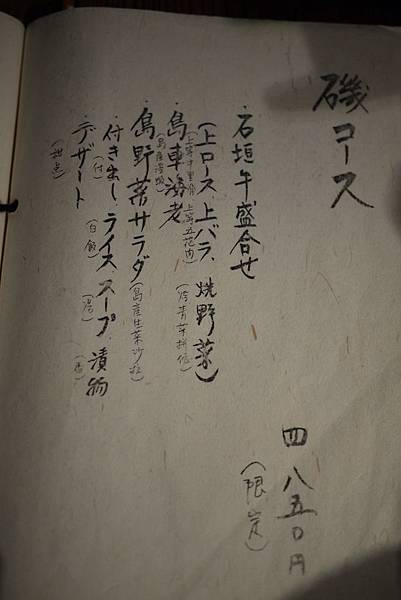 磯コース
四八五〇円
(限定)
・石垣牛盛合せ
(上ロース、上バラ、焼野菜)
(上等寸里骨 上等五花肉)
・島車海老
(島産海蝦)
・島野菜サラダ
(島産生菜沙拉)
・付き出し、ライス、スープ、漬物
(付) (白飯) (湯)
・デザート
(甜点)